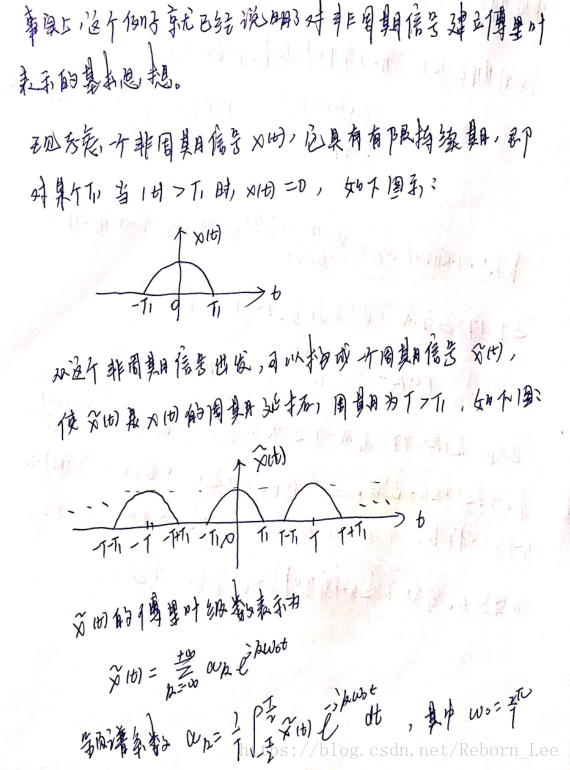 事实上,这个例子就已经说明了对非周期信号建立傅里叶
表示的基本思想。
现考虑一个非周期信号 x(t), 它具有有限持续期, 即
对某个T₁ 当 |t| > T₁ 时, x(t) = 0, 如下图示:
x(t)
-T₁ 0 T₁ t
从这个非周期信号出发, 可以构成一个周期信号 x̃(t),
使 x̃(t) 是 x(t) 的周期延拓, 周期为 T > T₁, 如下图:
x̃(t)
-T-T₁ -T -T+T₁ -T₁ 0 T₁ T-T₁ T T+T₁ t
x̃(t) 的傅里叶级数表示为
x̃(t) = ∑_{k=-∞}^{+∞} a_k e^{jkω₀t}
频谱系数 a_k = 1/T ∫_{-T/2}^{T/2} x̃(t) e^{-jkω₀t} dt , 其中 ω₀ = 2π/T
https://blog.csdn.net/Reborn_Lee